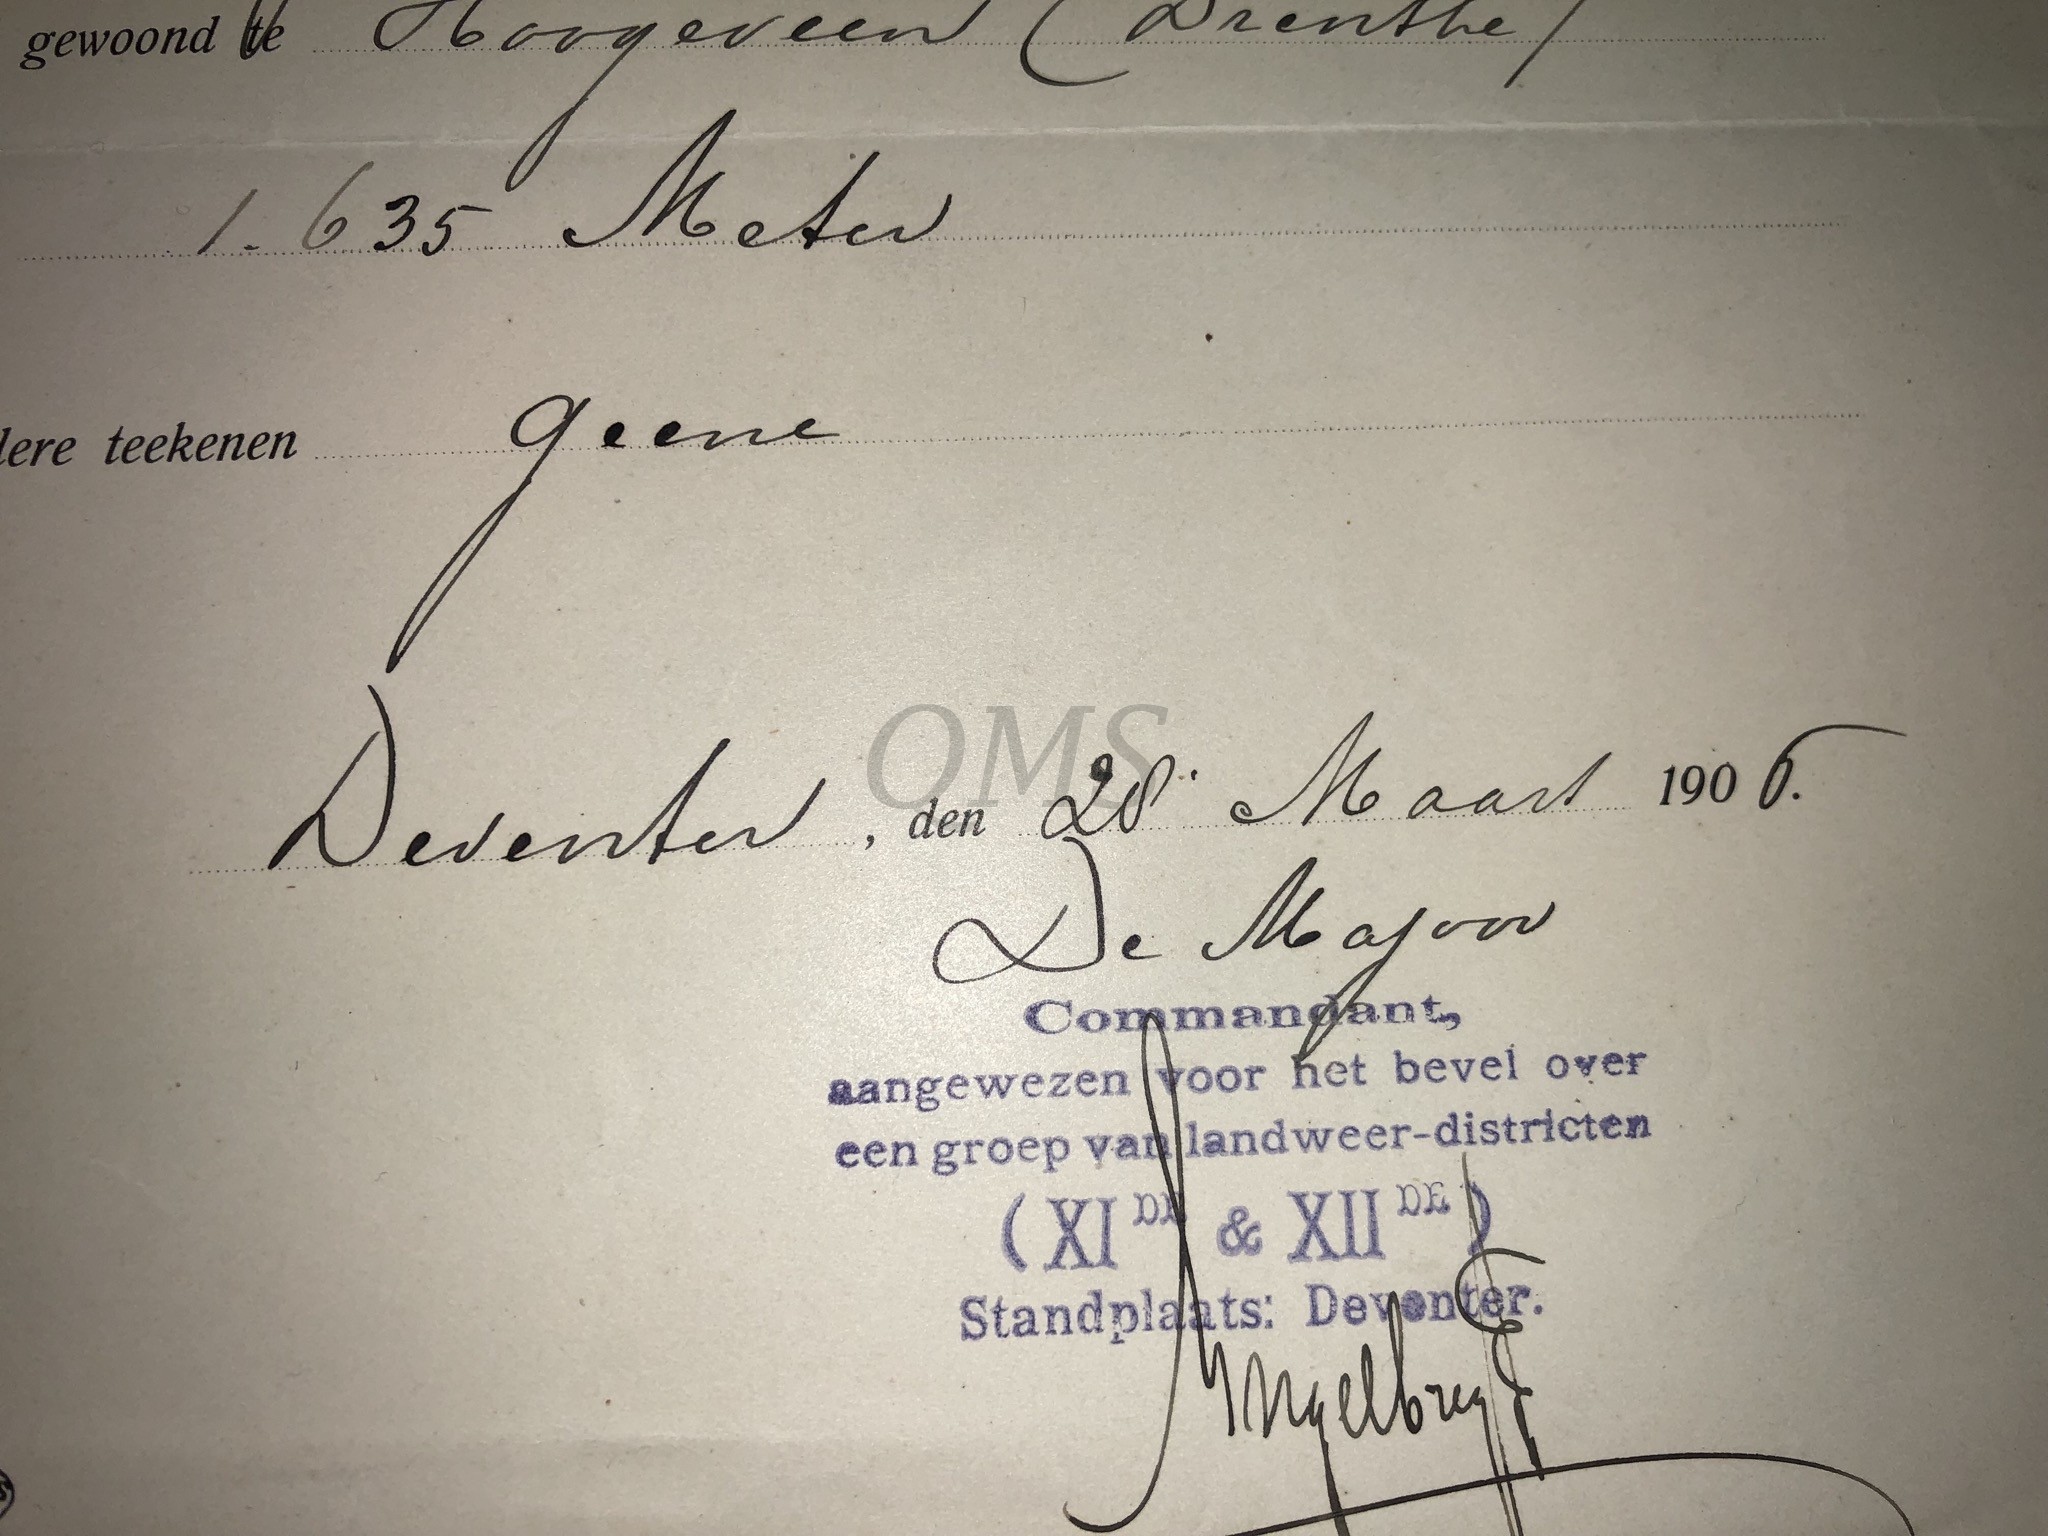 gewoond te Hoogeveen (Drenthe)
1.635 Meter
dere teekenen geene
OMS
Deventer, den 28 Maart 1906.
De Majoor
Commandant,
aangewezen voor het bevel over
een groep van landweer-districten
(XI DE & XII DE)
Standplaats: Deventer.